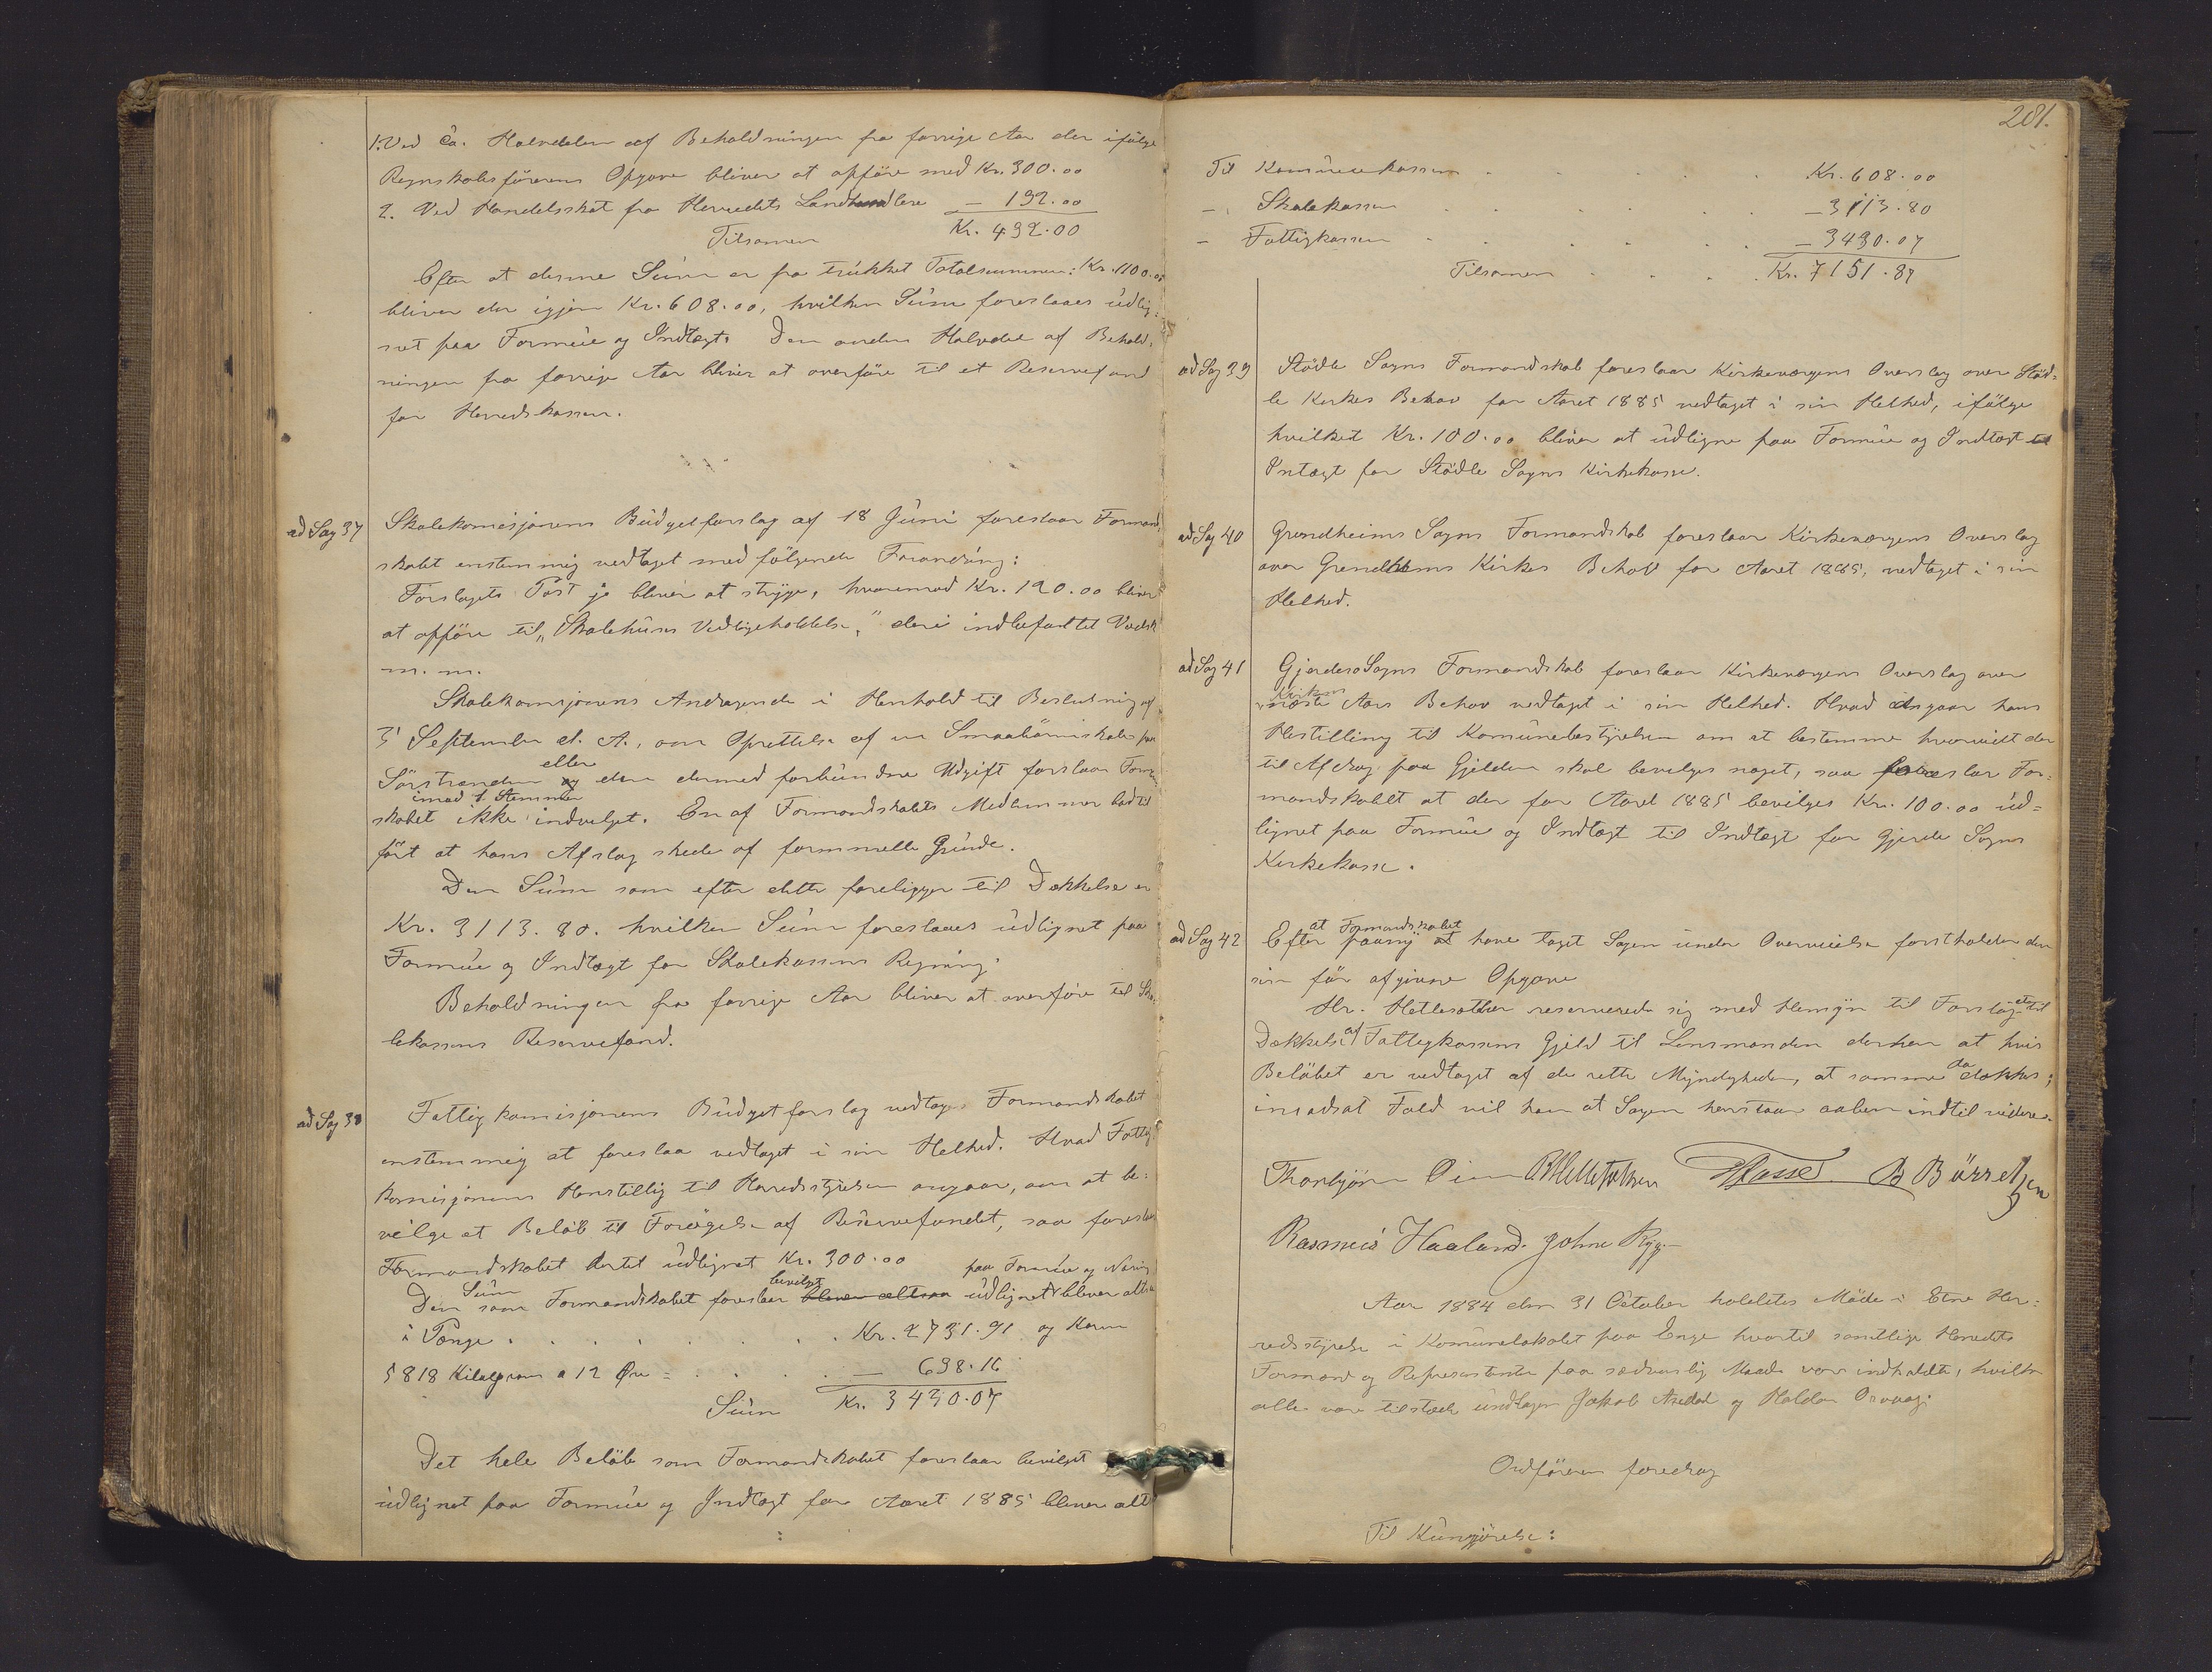 1. Ved ca. Halvdelen af Beholdningen fra forrige Aar der ifølge
Regnskabsførerens Opgave bliver at opføre med Kr. 300.00
2. Ved Handelsskat fra Herredets Landhandlere — 192.00
Tilsamen Kr. 492.00
Efter at denne Sum er fra trukket Totalsummen: Kr. 1100.00
bliver der igjen Kr. 608.00, hvilken Sum foreslaaes udlig-
net paa Formue og Indtægt. Den anden Halvdel af Behold-
ningen fra forrige Aar bliver at overføre til et Reservefond
for Herredskassen.
ad Sag 37 Skolekomisjonens Budgetforslag af 18 Juni foreslaar Formand-
skabet enstemmig vedtaget med følgende Forandring:
Forslagets Post je bliver at stryge, hvoremod Kr. 120.00 bliver
at opføre til "Skolehuses Vedligeholdelse," deri indbefattet Vedsk
m. m.
Skolekomisjonens Andragende i Henhold til Beslutning af
3 September d. A., om Oprettelse af en Smaabørnsskole paa
Sørstranden og den dermed forbundne Udgift forslaar Form
eller
skabet ikke indvilget. En af Formandskabets Medlemmer lod til
imod 1 Stemme
ført at hans Afslag skede af formmelle Grunde.
Den Sum som efter dette foreligger til Dækkelse er
Kr. 3113.80. hvilken Sum foreslaaes udlignet paa
Formue og Indtægt for Skolekassens Regning.
Beholdningen fra forrige Aar bliver at overføre til Sko-
lekassens Reservefond.
ad Sag 38 Fattigkomisjonens Budgetforslag vedtager Formandskabet
enstemmig at foreslaa vedtaget i sin Helhed. Hvad Fattig
komisjonens Henstillig til Herredsstyrelsen angaar, om at be-
vilge et Beløb til Forøgelse af Reservefondet, saa foreslaar
Formandskabet dertil udlignet Kr. 300.00 paa Formue og Næring
Den Sum som Formandskabet foreslaar bliver altsaa bevilget udlignet bliver altsaa
i Penge . . . . Kr. 2731.91 og Korn
5818 Kilogram a 12 Øre = . . . — 698.16
Sum Kr. 3430.07
Det hele Beløb som Formandskabet foreslaar bevilget
udlignet paa Formue og Indtægt for Aaret 1885 bliver alt
281.
Til Komunekassen . . . . Kr. 608.00
— Skolekassen . . . . — 3113.80
— Fattigkassen . . . . — 3430.07
Tilsamen . . . . Kr. 7151.87
ad Sag 39 Stødle Sogns Formandskab foreslaar Kirkeværgens Overslag over Stød-
le Kirkes Behov for Aaret 1885 vedtaget i sin Helhed, ifølge
hvilket Kr. 100.00 bliver at udligne paa Formue og Indtægt til
Intægt for Stødle Sogns Kirkekasse.
ad Sag 40 Grindheims Sogns Formandskab foreslaar Kirkeværgens Overslag
over Grindheims Kirkes Behov for Aaret 1885, vedtaget i sin
Helhed.
ad Sag 41 Gjerdes Sogns Formandskab foreslaar Kirkeværgens Overslag over
Kirkens
næste Aars Behov vedtaget i sin Helhed. Hvad angaar hans
Hestilling til Komunebestyrelsen om at bestemme hvorvidt der
til Afdrag paa Gjelden skal bevilges noget, saa foreslar For-
mandskabet at der for Aaret 1885 bevilges Kr. 100.00 ud-
lignet paa Formue og Indtægt til Indtægt for Gjerde Sogns
Kirkekasse.
at Formandskabet
ad Sag 42 Efter paany at have taget Sagen under Overveielse fastholder den
sin før afgivne Opgave
Hr. Hetlesæther reserverede sig med Hensyn til Forslaget til
Dækkelse af Fattigkassens Gjeld til Lensmanden derhen at hvis
Beløbet er vedtaget af de rette Myndigheder, at samme da dækkes;
imodsat Fald vil han at Sagen henstaar aaben indtil videre.
Thorbjørn Oien B Hetlesæther Fasse B Børretzen
Rasmus Haaland. John Ryg.
Aar 1884 den 31 October holdtes Møde i Etne Her-
redsstyrelse i Komunelokalet paa Enge hvortil samtlige Herredets
Formænd og Repræsentanter paa sædvanlig Maade var indkaldte, hvilke
alle var tilstede undtagen Jakob og Haldor Osvaag.
Ordføreren foredrog
Til Kungjørelse: